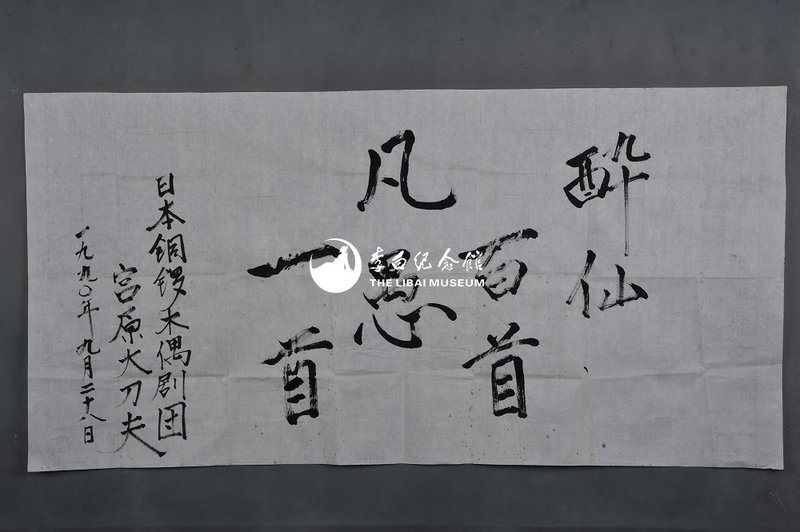 酔仙
百首
凡愚
一首
日本铜锣木偶剧团
宫原大刀夫
一九九〇年九月二十八日
李白纪念馆
THE LIBAI MUSEUM